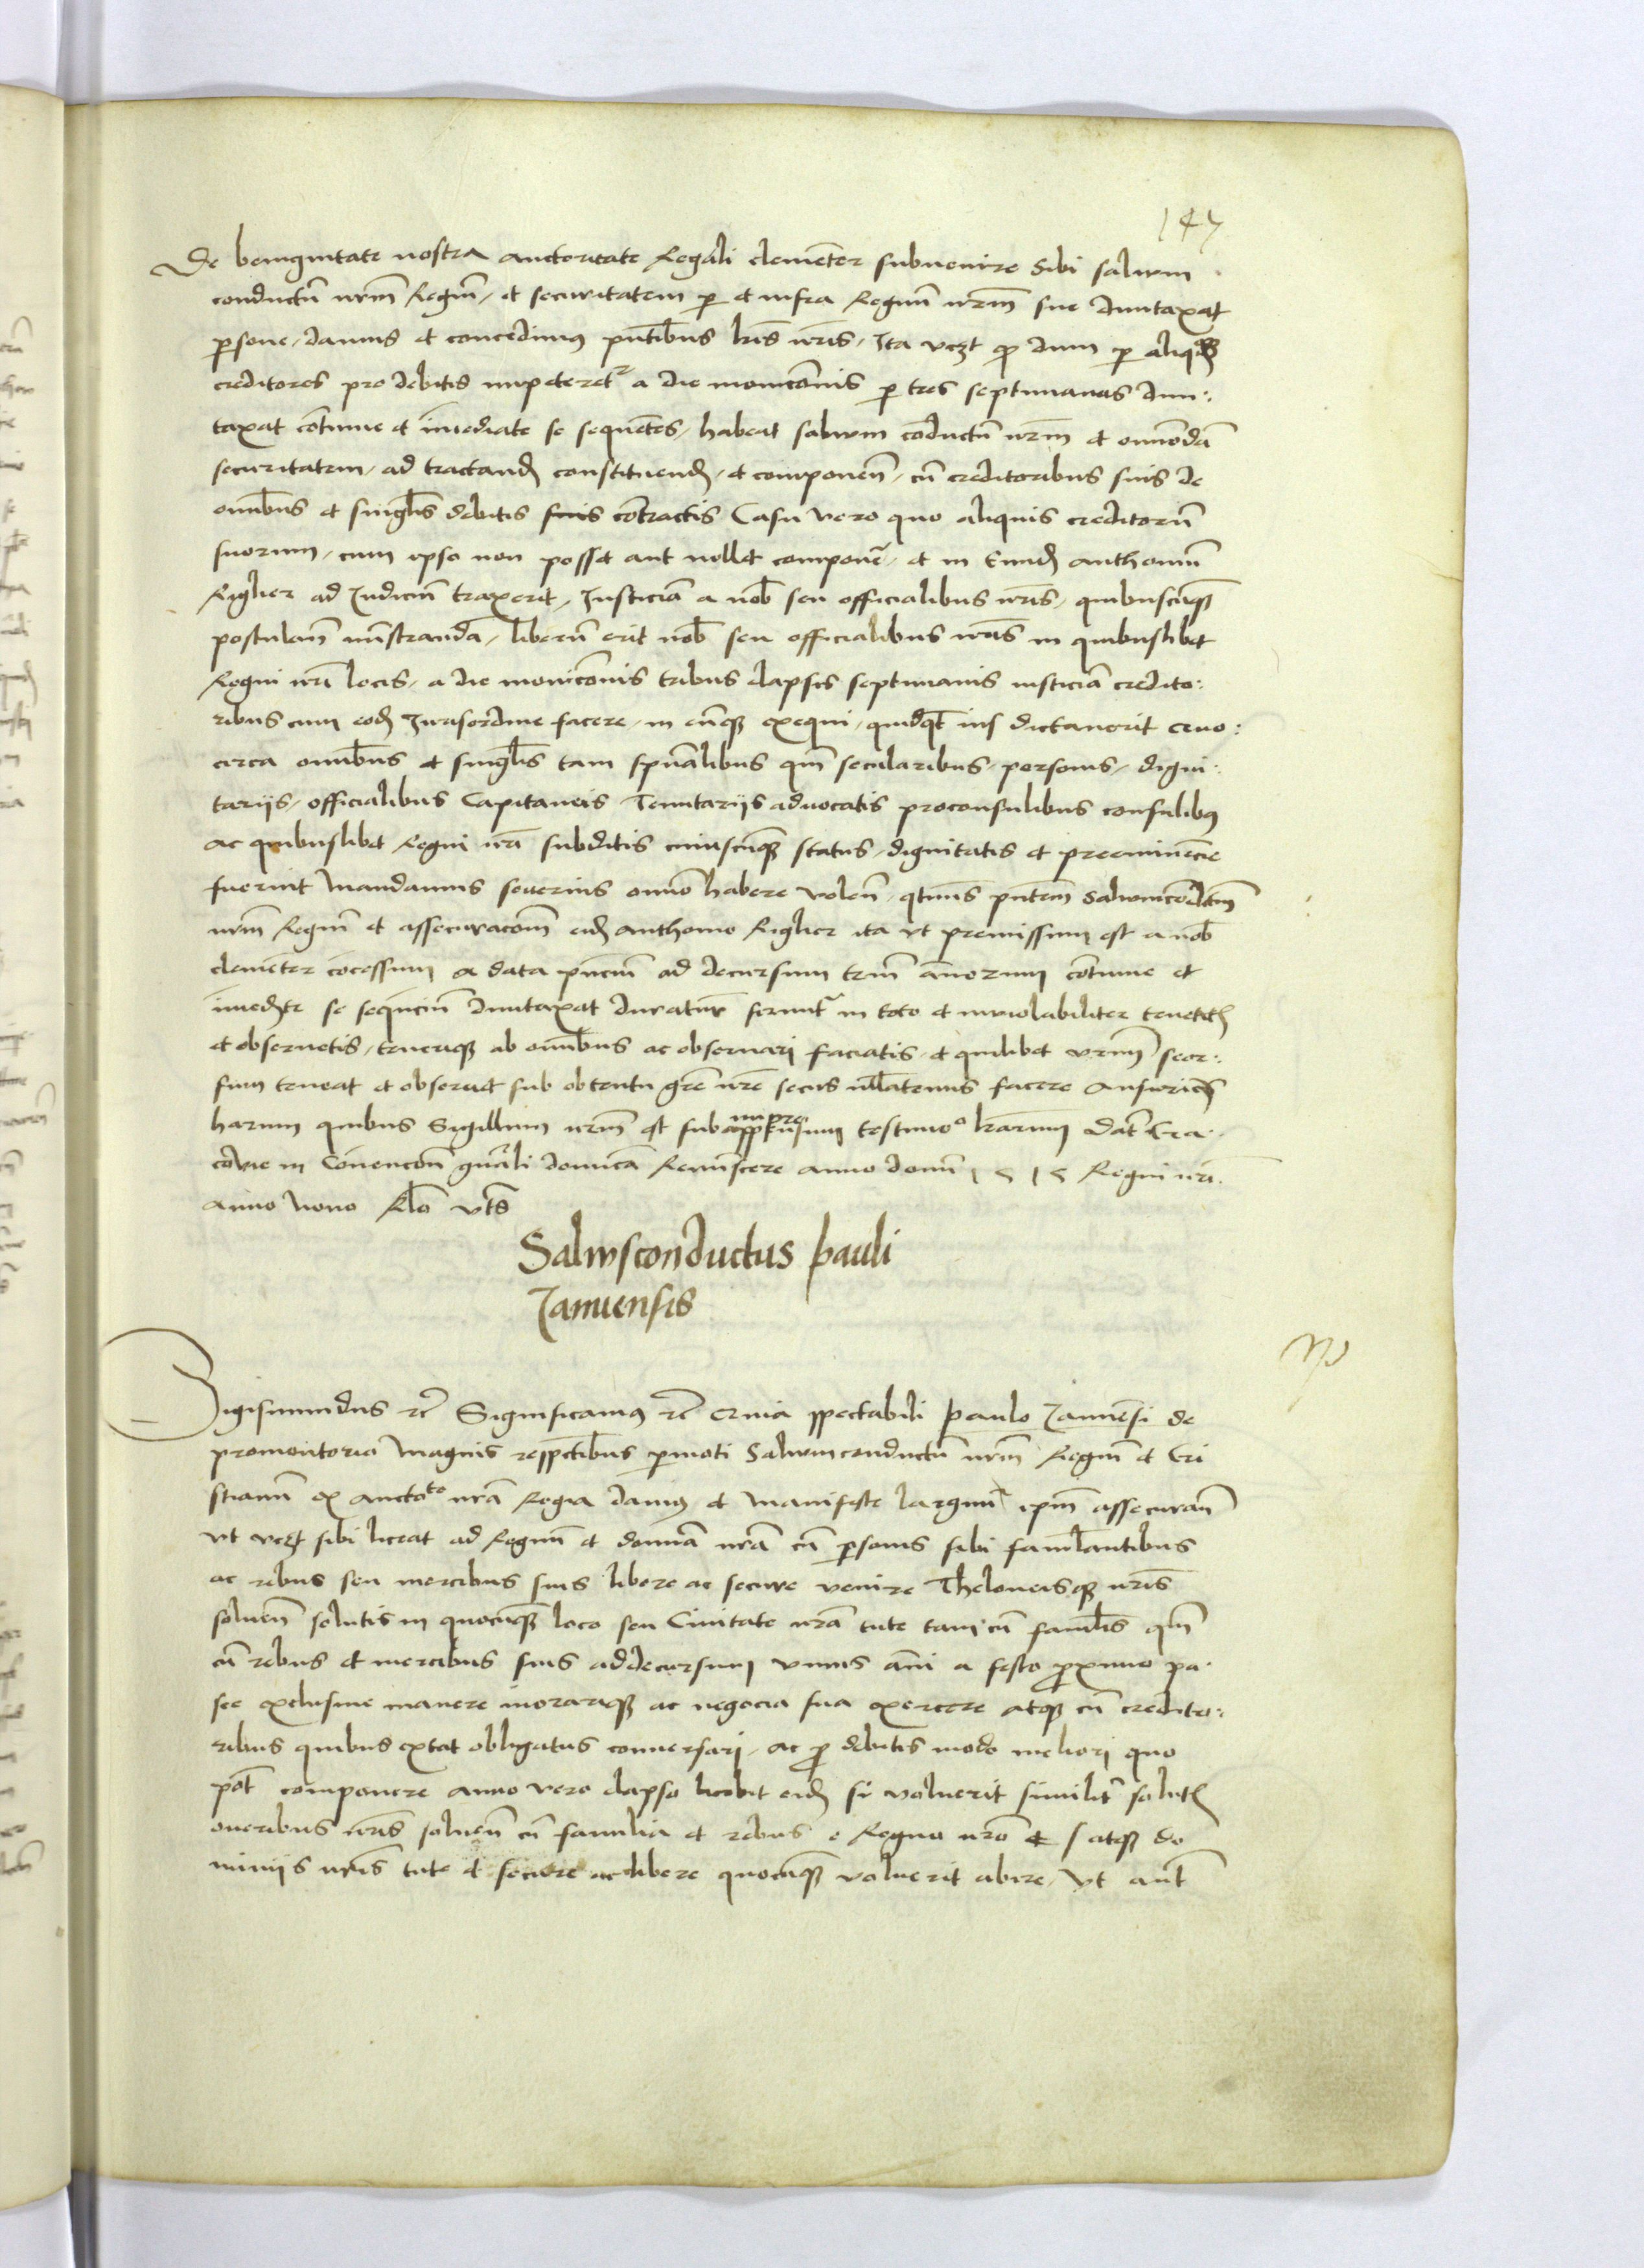 147
De benignitate nostra auctoritate Regali clementer subvenire Sibi saluum
conductū nrm̄ Regiū, et securitatem p et infra Regnū nrm̄ sue duntaxat
psone, damus et concedimus pntibus lris nris, Ita vczt qd dum p aliqos
creditores pro debitis impeteretr a die monicionis p tres septimanas dun:
taxat cōtinue et īmediate se sequētes, habeat saluum cōductū nrm̄ et omnimodā
securitatem, ad tractand constituend, et componen, cū creditoribus suis de
omibus et singlis debitis suis cōtractis Casu vero quo aliquis creditorū
suorum, cum ipso non posset aut nollet componē, et in Eund anthoniū
Riglier ad Iudiciū traxerit, Iusticiā a nob seu officialibus nris, quibuscūqz
postulan ministrandā, liberū erit nob seu officialibus nris in quibuslibet
Regni nri locis, a die monicōnis tribus elapsis septimanis iusticiā credito:
ribus cum eod Iurisordine facere, in eūqz exequi, quidqt ius dictauerit Quo:
circa omibus et singlis tam spūalibus qm̄ secularibus, personis, digni:
tariis, officialibus Capitaneis Tenutariis aduocatis proconsulibus consulibus
ac quibuslibet Regni nri subditis cuiuscūqz status, dignitatis et preeminēcie
fuerint Mandamus seuerius omō habere volen, qtenus pntem Saluumcōductū
nrm̄ Regiū et assecuracōm eid anthonio Riglier ita vt premissum est a nob
clemēter cōcessum a data pnciū ad decursum triū annorum cōtinue et
īmedte se sequēciū duntaxat duratur firmitr in toto et inuiolabiliter teneatis
et obseruetis, teneriqz ab omibus ac obseruari faciatis, et quilibet vrm̄ seor:
sum teneat et obseruet sub obtentu gre nre secus nllatenus facere ansuri
harum quibus Sigillum nrm̄ est subimpressum testimo lrarum Dat Cra:
couie in Conuencōe gnāli dominica Reminiscere anno domi 1515 Regni nri
anno Nono Rlo vts
Saluusconductus pauli
Ianuensis
Sigismundus rc Significamus rc Quia spectabili Paulo Ianuensi de
promontorio Magnis respectibus pmoti Saluumconductū nrm̄ Regiū et Cri
stianū ex auctote nrā Regia damus et Manifeste largimr ipm̄ assecuran
vt vczt sibi liceat ad Regnū et domiā nrā cū psonis sibi famlantibus
ac rebus seu mercibus suis libere ac secure venire Theloneisqz nris
soluen solutis in quocūqz loco seu Ciuitate nrā tute tam cū famlis qm̄
cū rebus et mercibus suis ad decursum vnius ani a festo proximo pa
sce exclusiue manere morariqz ac negocia sua exercere atqz cū credito:
ribus quibus extat obligatus conuersari, ac pro debitis modo meliori quo
pot componere anno vero elapso licebit eid si voluerit similitr solutis
oneribus nris soluen cū familia et rebus e Regno nro et atqz do
miniis nris tute et secure ac libere quocūqz voluerit abire, Vt aut